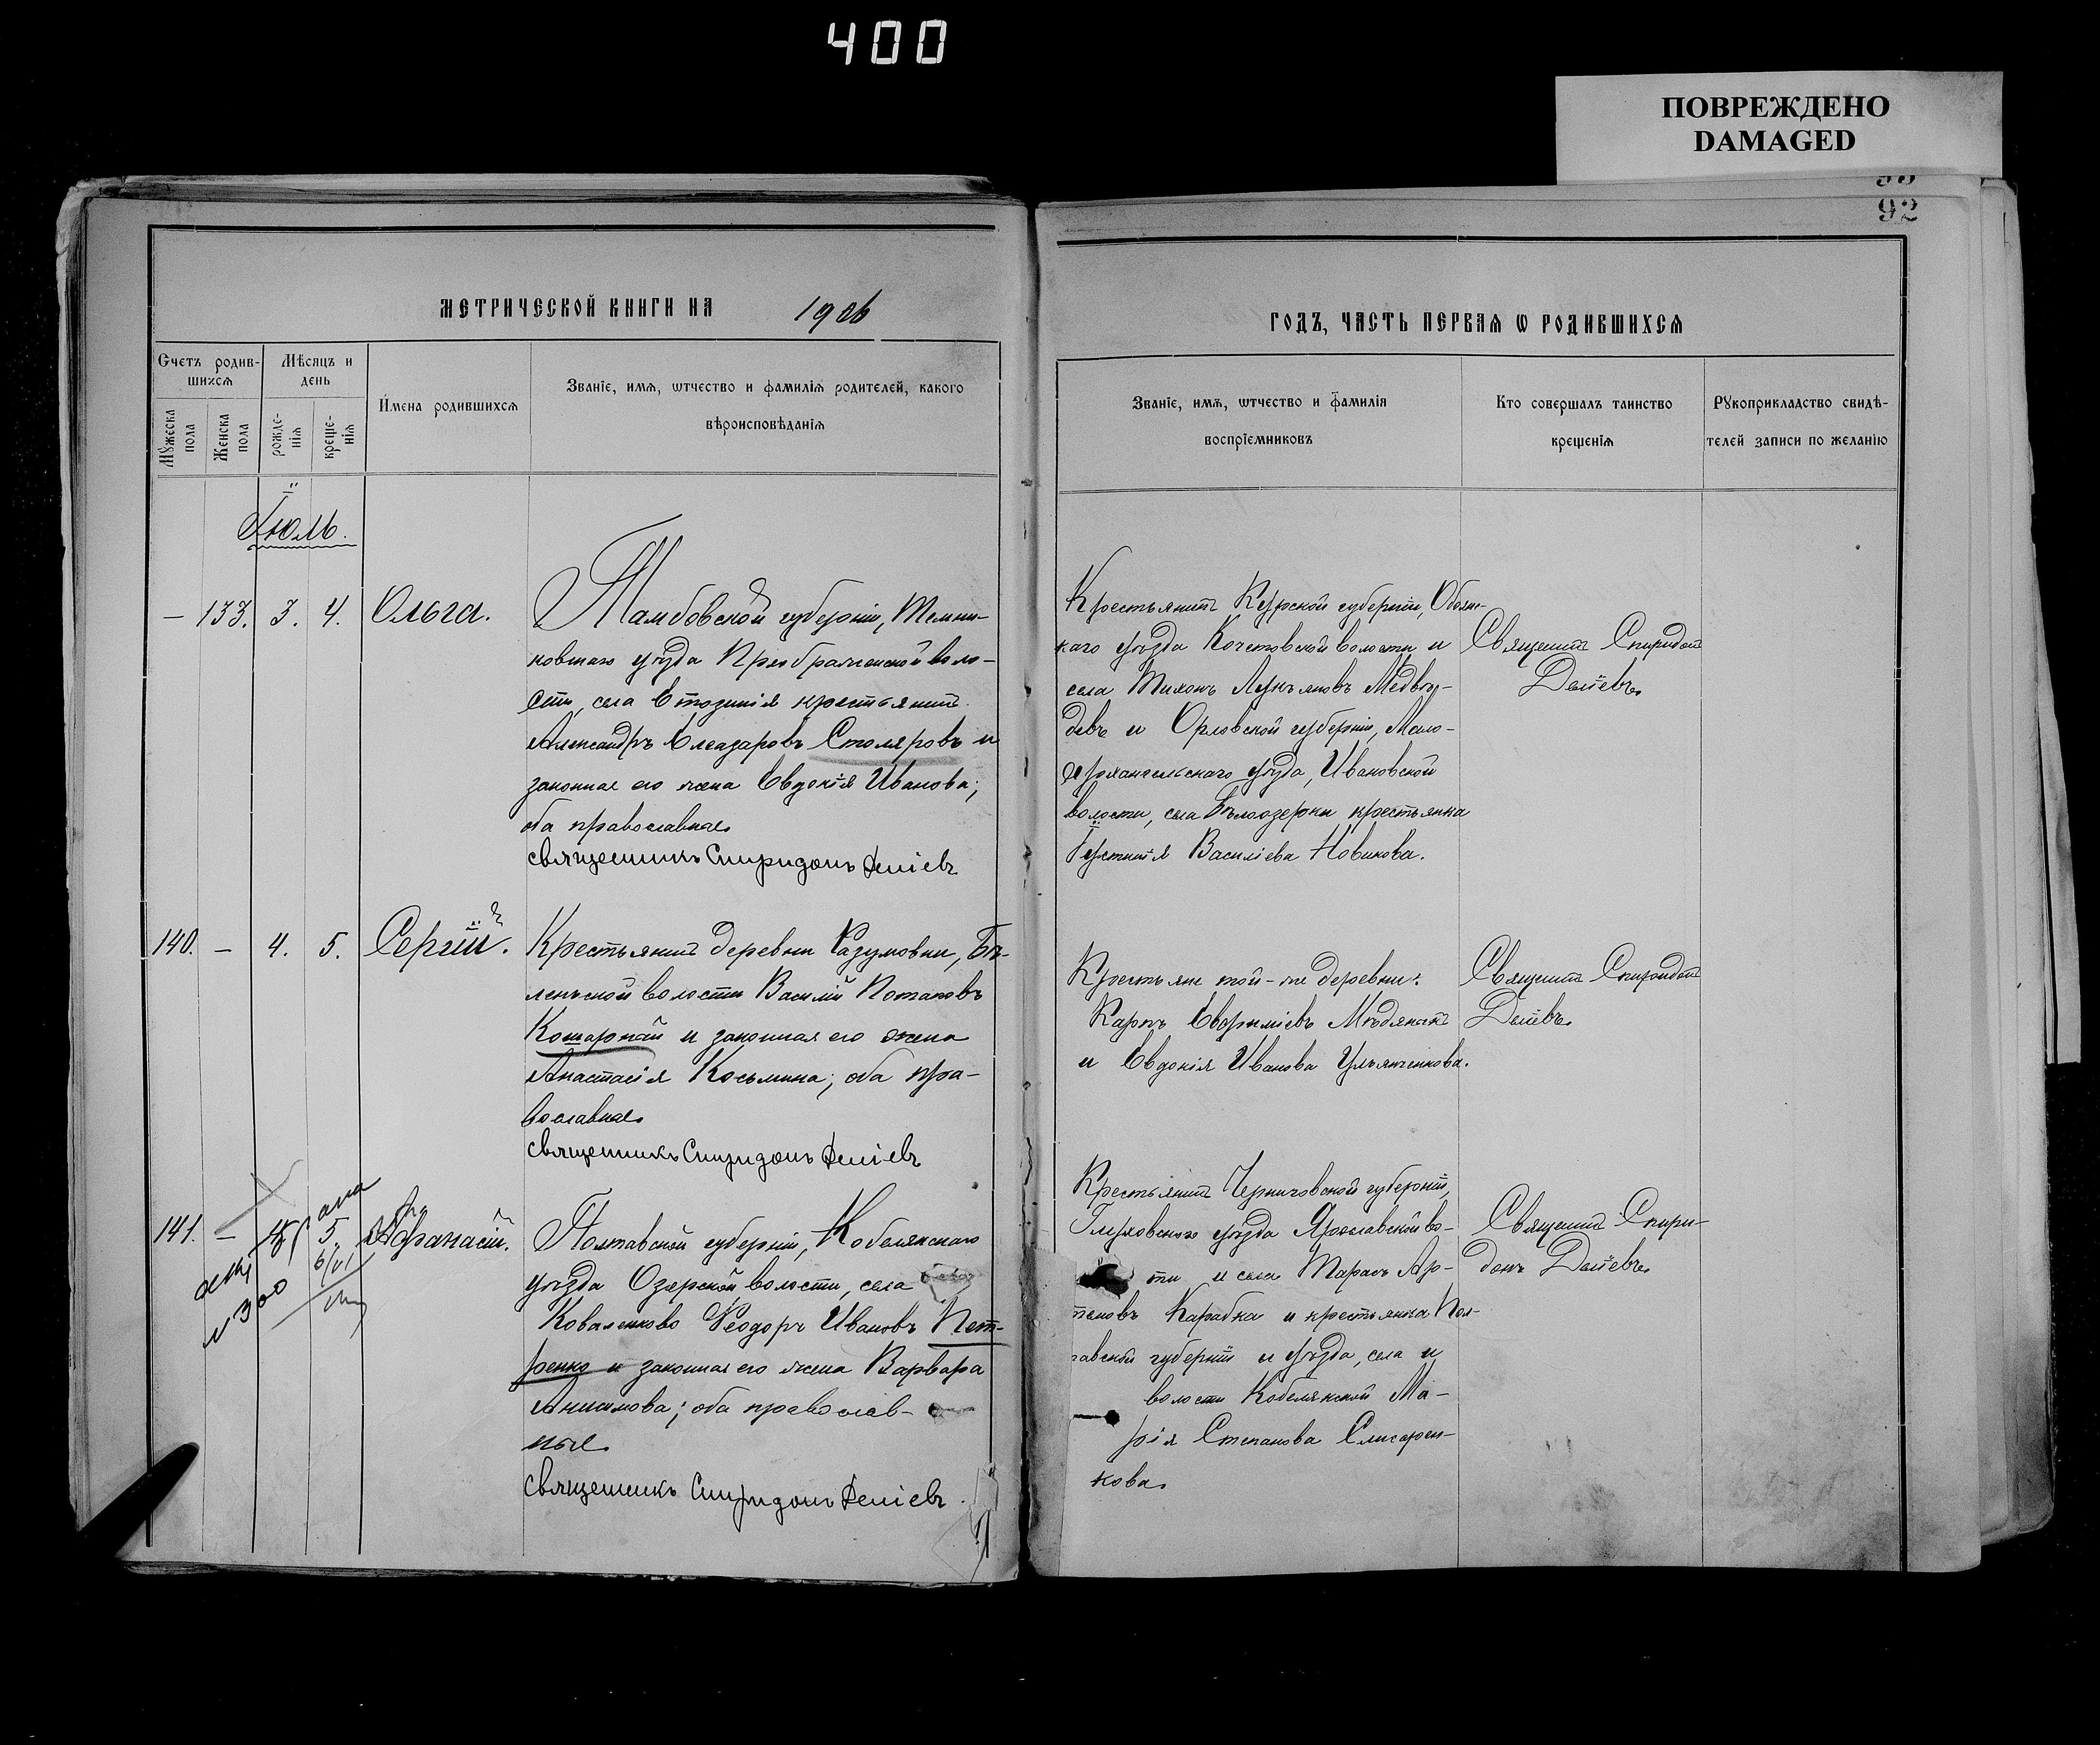 400
ПОВРЕЖДЕНО
DAMAGED
92
МЕТРИЧЕСКОЙ КНИГИ НА 1906
ГОДЪ, ЧАСТЬ ПЕРВАЯ Ѡ РОДИВШИХСЯ
Счетъ родив-
шихся
Мѣсяцъ и
день
Мужеска
пола
Женска
пола
рожде-
нія
креще-
нія
Имена родившихся
Званіе, имя, ѡтчество и фамилія родителей, какого
вѣроисповѣданія
Званіе, имя, ѡтчество и фамилія
воспріемниковъ
Кто совершалъ таинство
крещенія
Рукоприкладство свидѣ-
телей записи по желанію
Іюль.
— 133. 3. 4. Ольга.
Тамбовской губерніи, Темни-
ковскаго уѣзда Преображенской воло-
сти, села крестьянинъ
Александръ Елеазаровъ Столяровъ и
законная его жена Евдокія Иванова;
оба православные.
священникъ Спиридонъ Деліевъ
Крестьянинъ Курской губерніи, Обоян-
скаго уѣзда волости и
села Тихонъ Лукьяновъ Медвѣ-
девъ и Орловской губерніи, Мало-
архангельскаго уѣзда, Ивановской
волости, села Бѣлоозерки крестьянка
Іустинія Василіева Новикова.
Священникъ Спиридонъ
Деліевъ.
140. — 4. 5. Сергій.
Крестьянинъ деревни Разумовки, Бѣ-
ленской волости Василій Потаповъ
Кошарный и законная его жена
Анастасія Косьмина; оба пра-
вославные.
священникъ Спиридонъ Деліевъ
Крестьяне той-же деревни:
Карпъ Евфиміевъ Мѣдяникъ
и Евдокія Иванова Ульянченкова.
Священникъ Спиридонъ
Деліевъ.
141. — 5. Афанасій.
6/VI
N 300
Полтавской губерніи, Кобелякскаго
уѣзда Озерской волости, села
Коваленково Ѳеодоръ Ивановъ Пет-
ренко и законная его жена Варвара
Анисимова; оба православ-
ные.
священникъ Спиридонъ Деліевъ.
Крестьянинъ Черниговской губерніи,
Глуховскаго уѣзда Ярославской во-
ти и села Тарасъ Ар-
теновъ Карабка и крестьянка Пол-
тавской губерніи и уѣзда, села и
волости Кобелякской Ма-
рія Степанова Слисарен-
кова.
Священникъ Спири-
донъ Деліевъ.